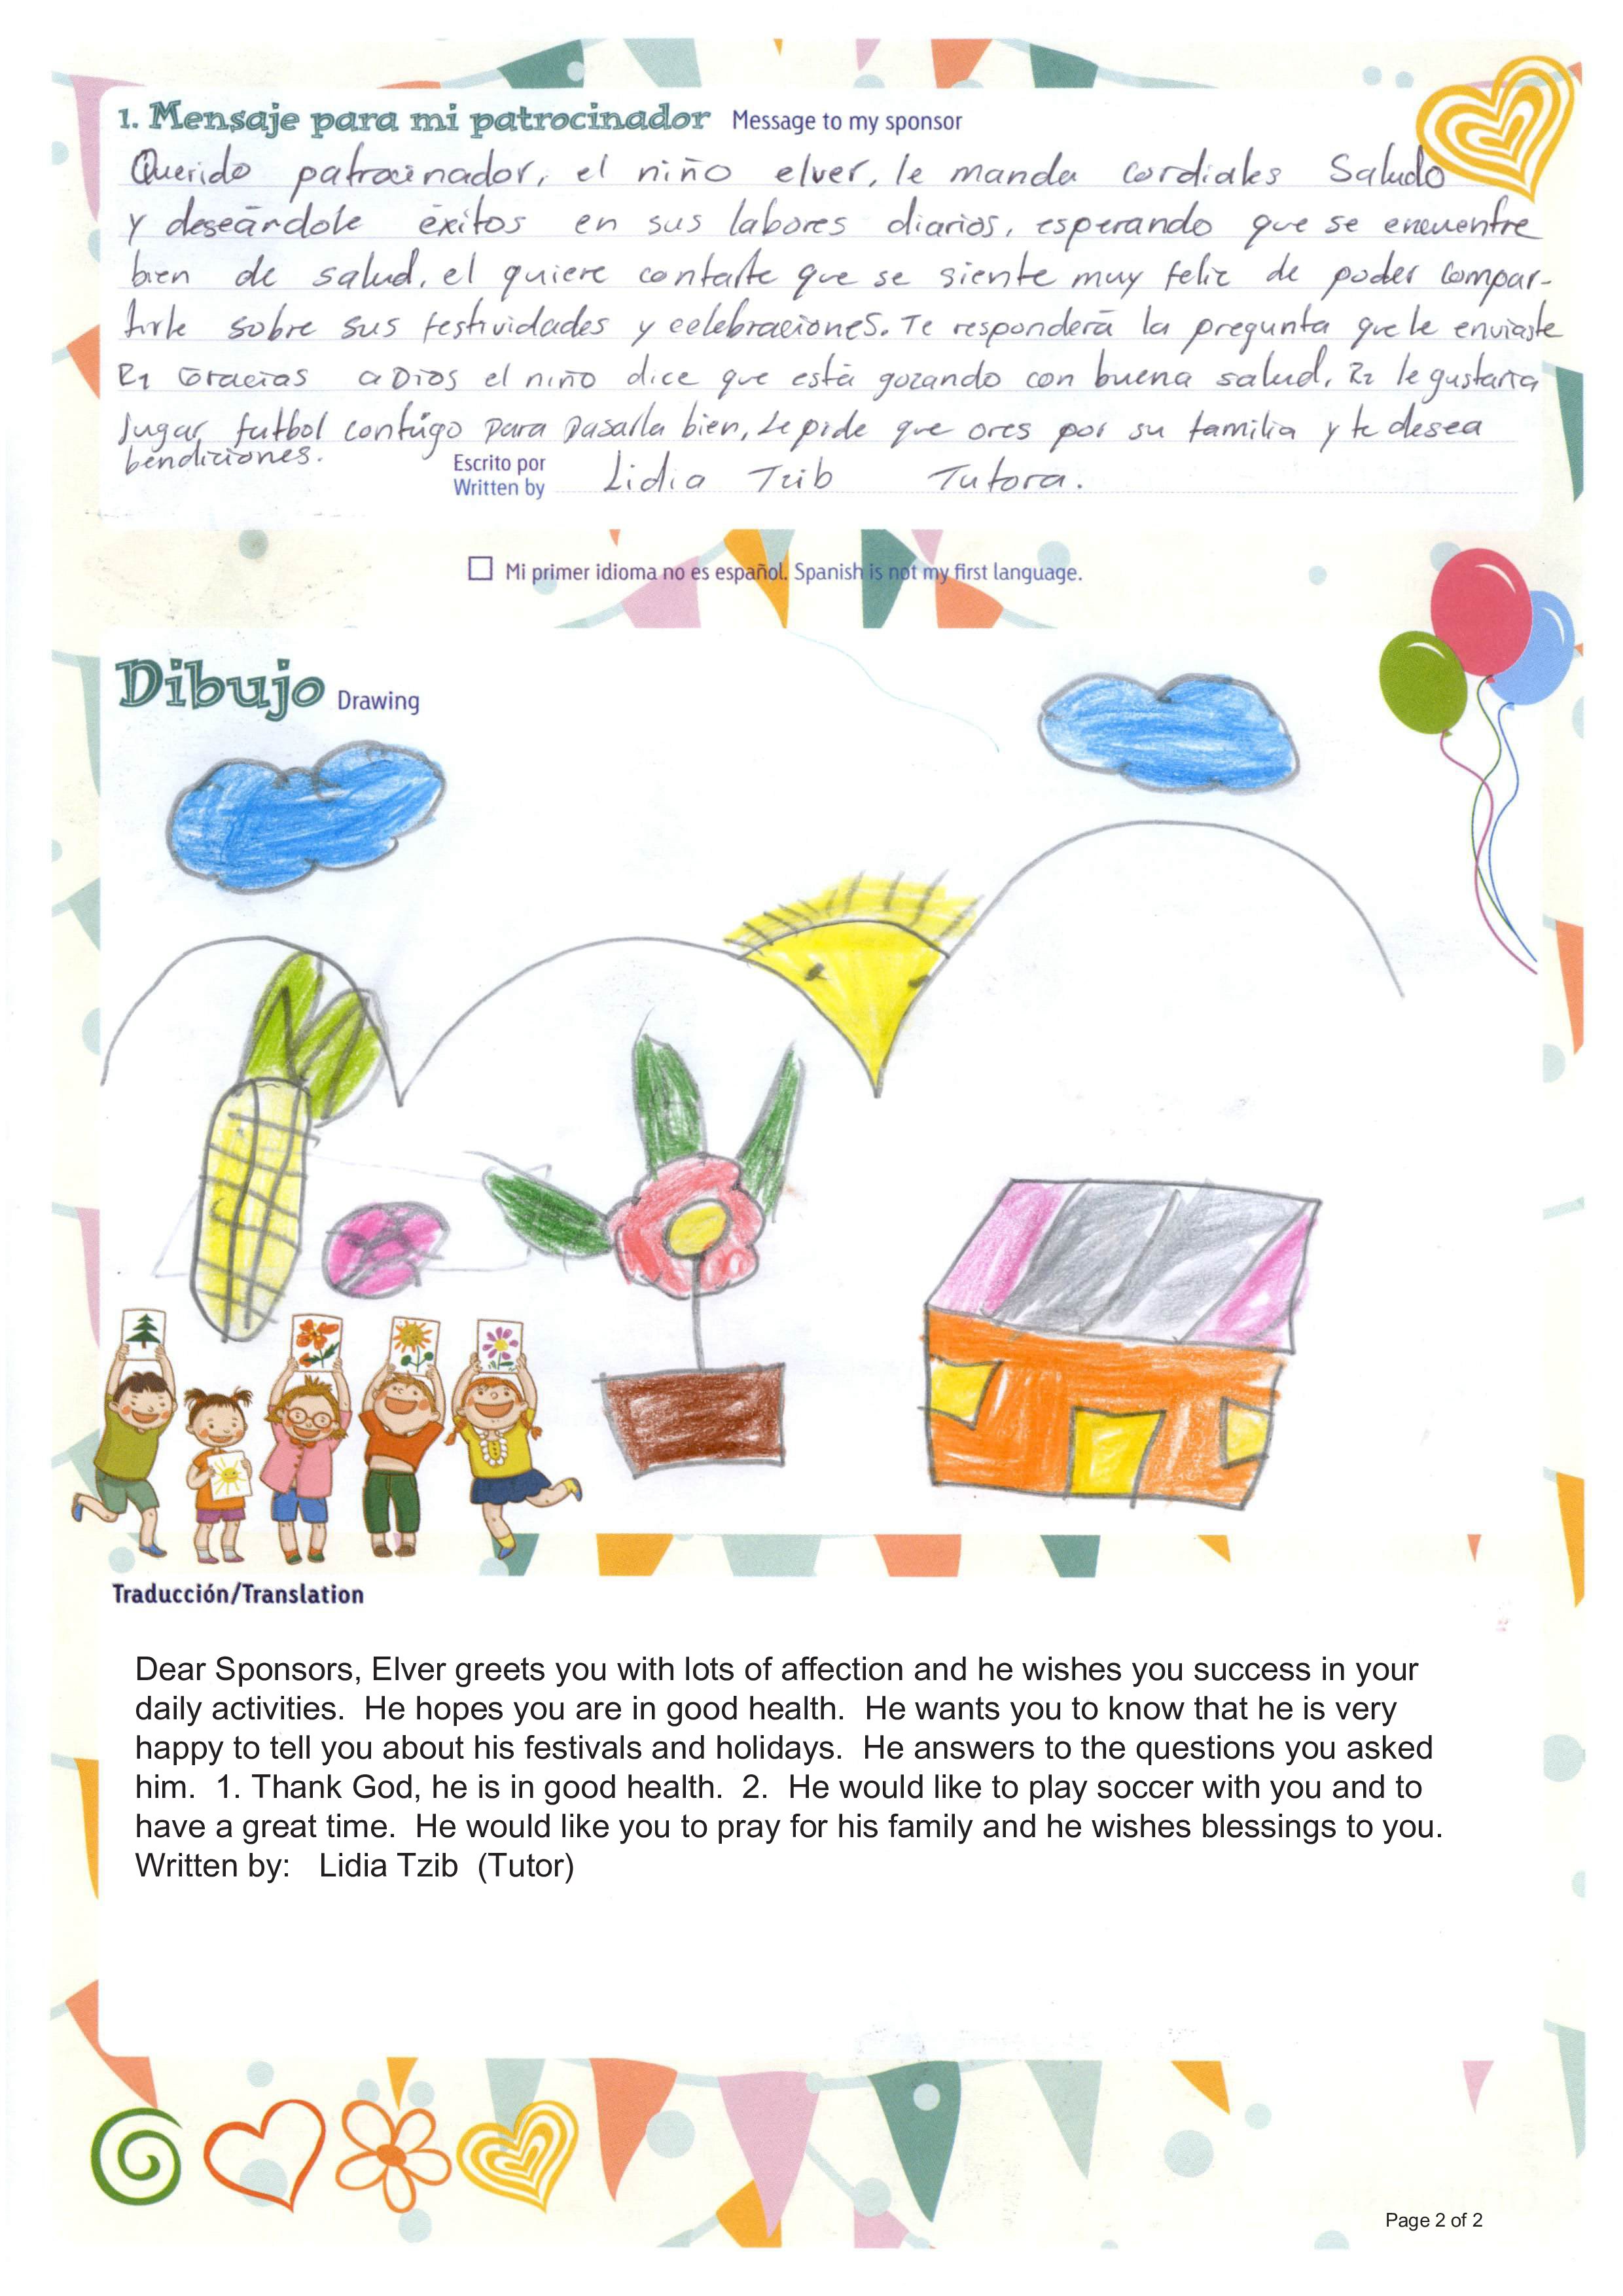 1. Mensaje para mi patrocinador Message to my sponsor
Querido patrocinador, el niño elver, le manda cordiales Saludo
y deseándole éxitos en sus labores diarios, esperando que se encuentre
bien de salud, el quiere contarte que se siente muy feliz de poder compar-
tirle sobre sus festividades y celebraciones. Te responderá la pregunta que le enviaste
R1 Gracias a Dios el niño dice que está gozando con buena salud, R2 le gustaria
Jugar futbol contigo para pasarla bien, Le pide que ores por su familia y te desea
bendiciones.
Escrito por
Written by Lidia Tzib Tutora.
Mi primer idioma no es español. Spanish is not my first language.
Dibujo Drawing
Traducción/Translation
Dear Sponsors, Elver greets you with lots of affection and he wishes you success in your
daily activities. He hopes you are in good health. He wants you to know that he is very
happy to tell you about his festivals and holidays. He answers to the questions you asked
him. 1. Thank God, he is in good health. 2. He would like to play soccer with you and to
have a great time. He would like you to pray for his family and he wishes blessings to you.
Written by: Lidia Tzib (Tutor)
Page 2 of 2